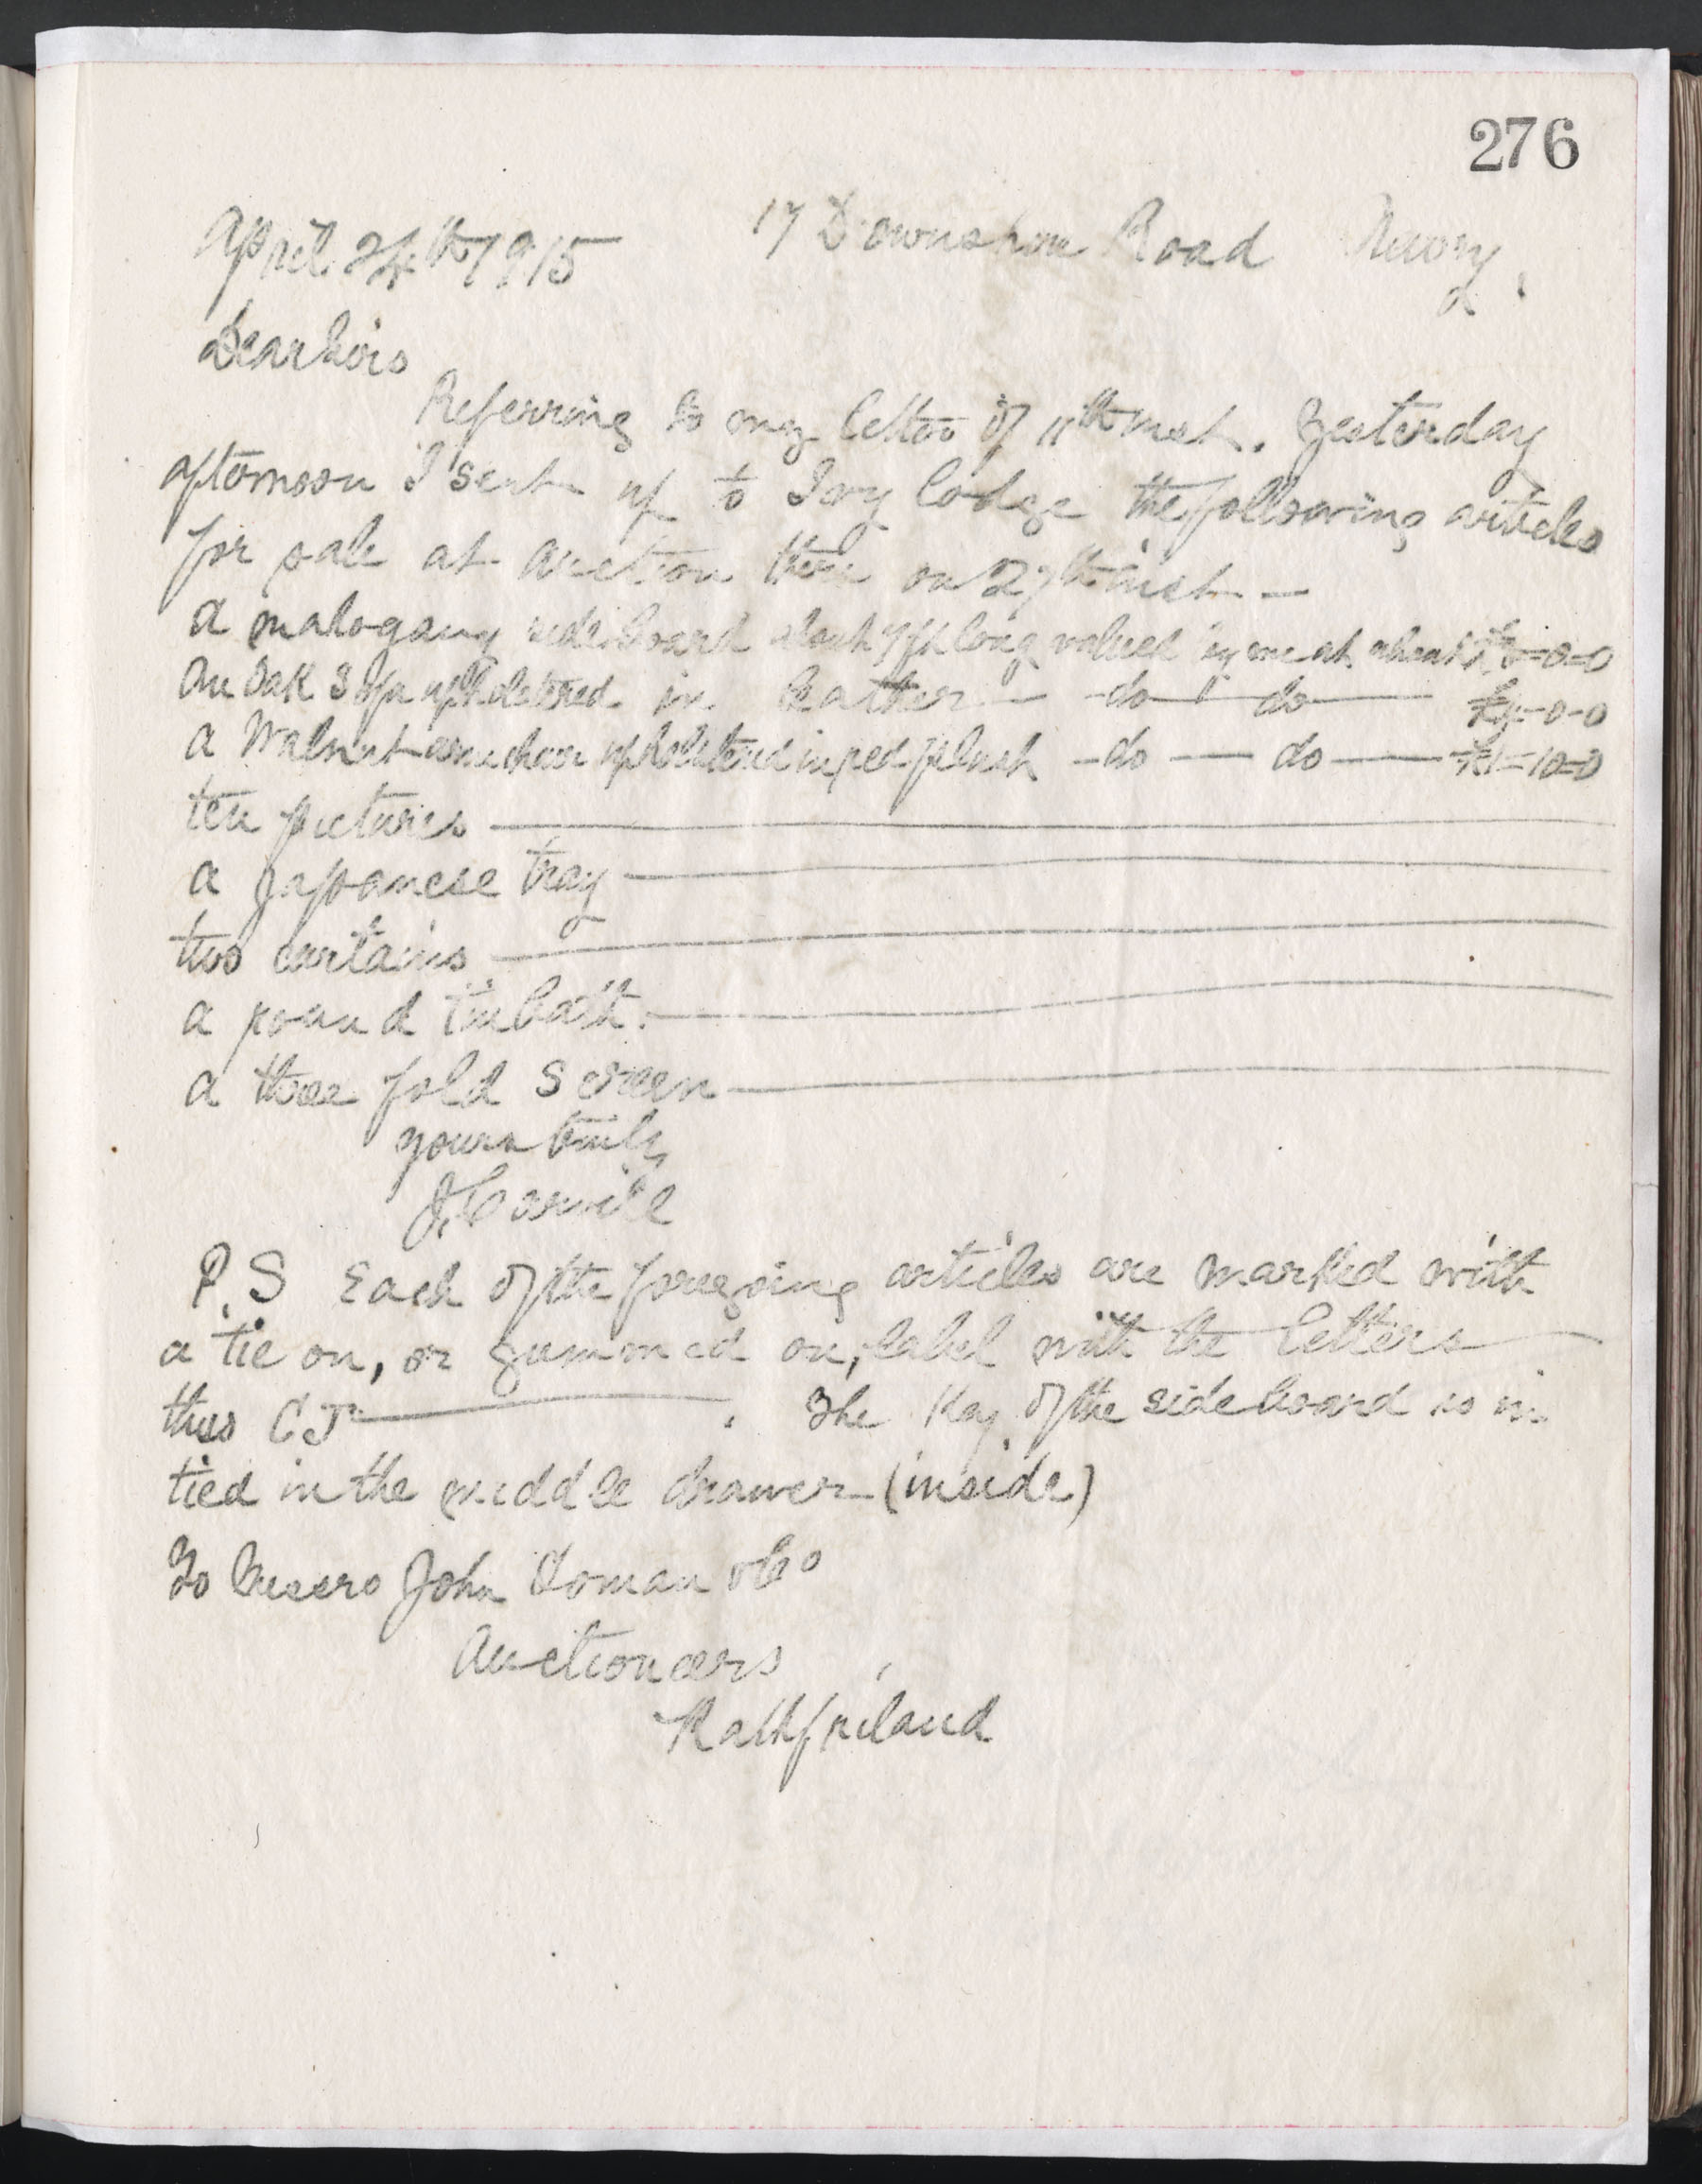 276
April 24th 1915 17 Downshire Road Newry.
Dear Sirs
Referring to my letter of 11th inst. Yesterday
afternoon I sent up to Ivy Lodge the following articles
for sale at auction there on 27th inst —
a mahogany sideboard about 7ft long valued by me at about £ -0-0
An Oak Sofa upholstered in leather — do — do — £4-0-0
a Walnut armchair upholstered in red plush - do — do — £1-10-0
ten pictures —
a Japanese tray —
two curtains —
a round tin bath. —
a three fold Screen —
yours truly
J. Carvill
P.S Each of the foregoing articles are marked with
a tie on, or gummed on, label with the letters
thus CJ — . The Key of the sideboard is in
tied in the middle drawer (inside)
To Messrs John & Co
Auctioneers
Rathfriland